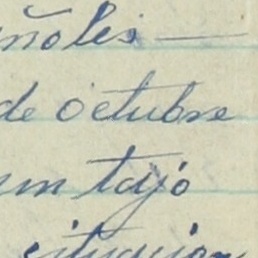 ñoles —
de octubre
un tajo
situacion